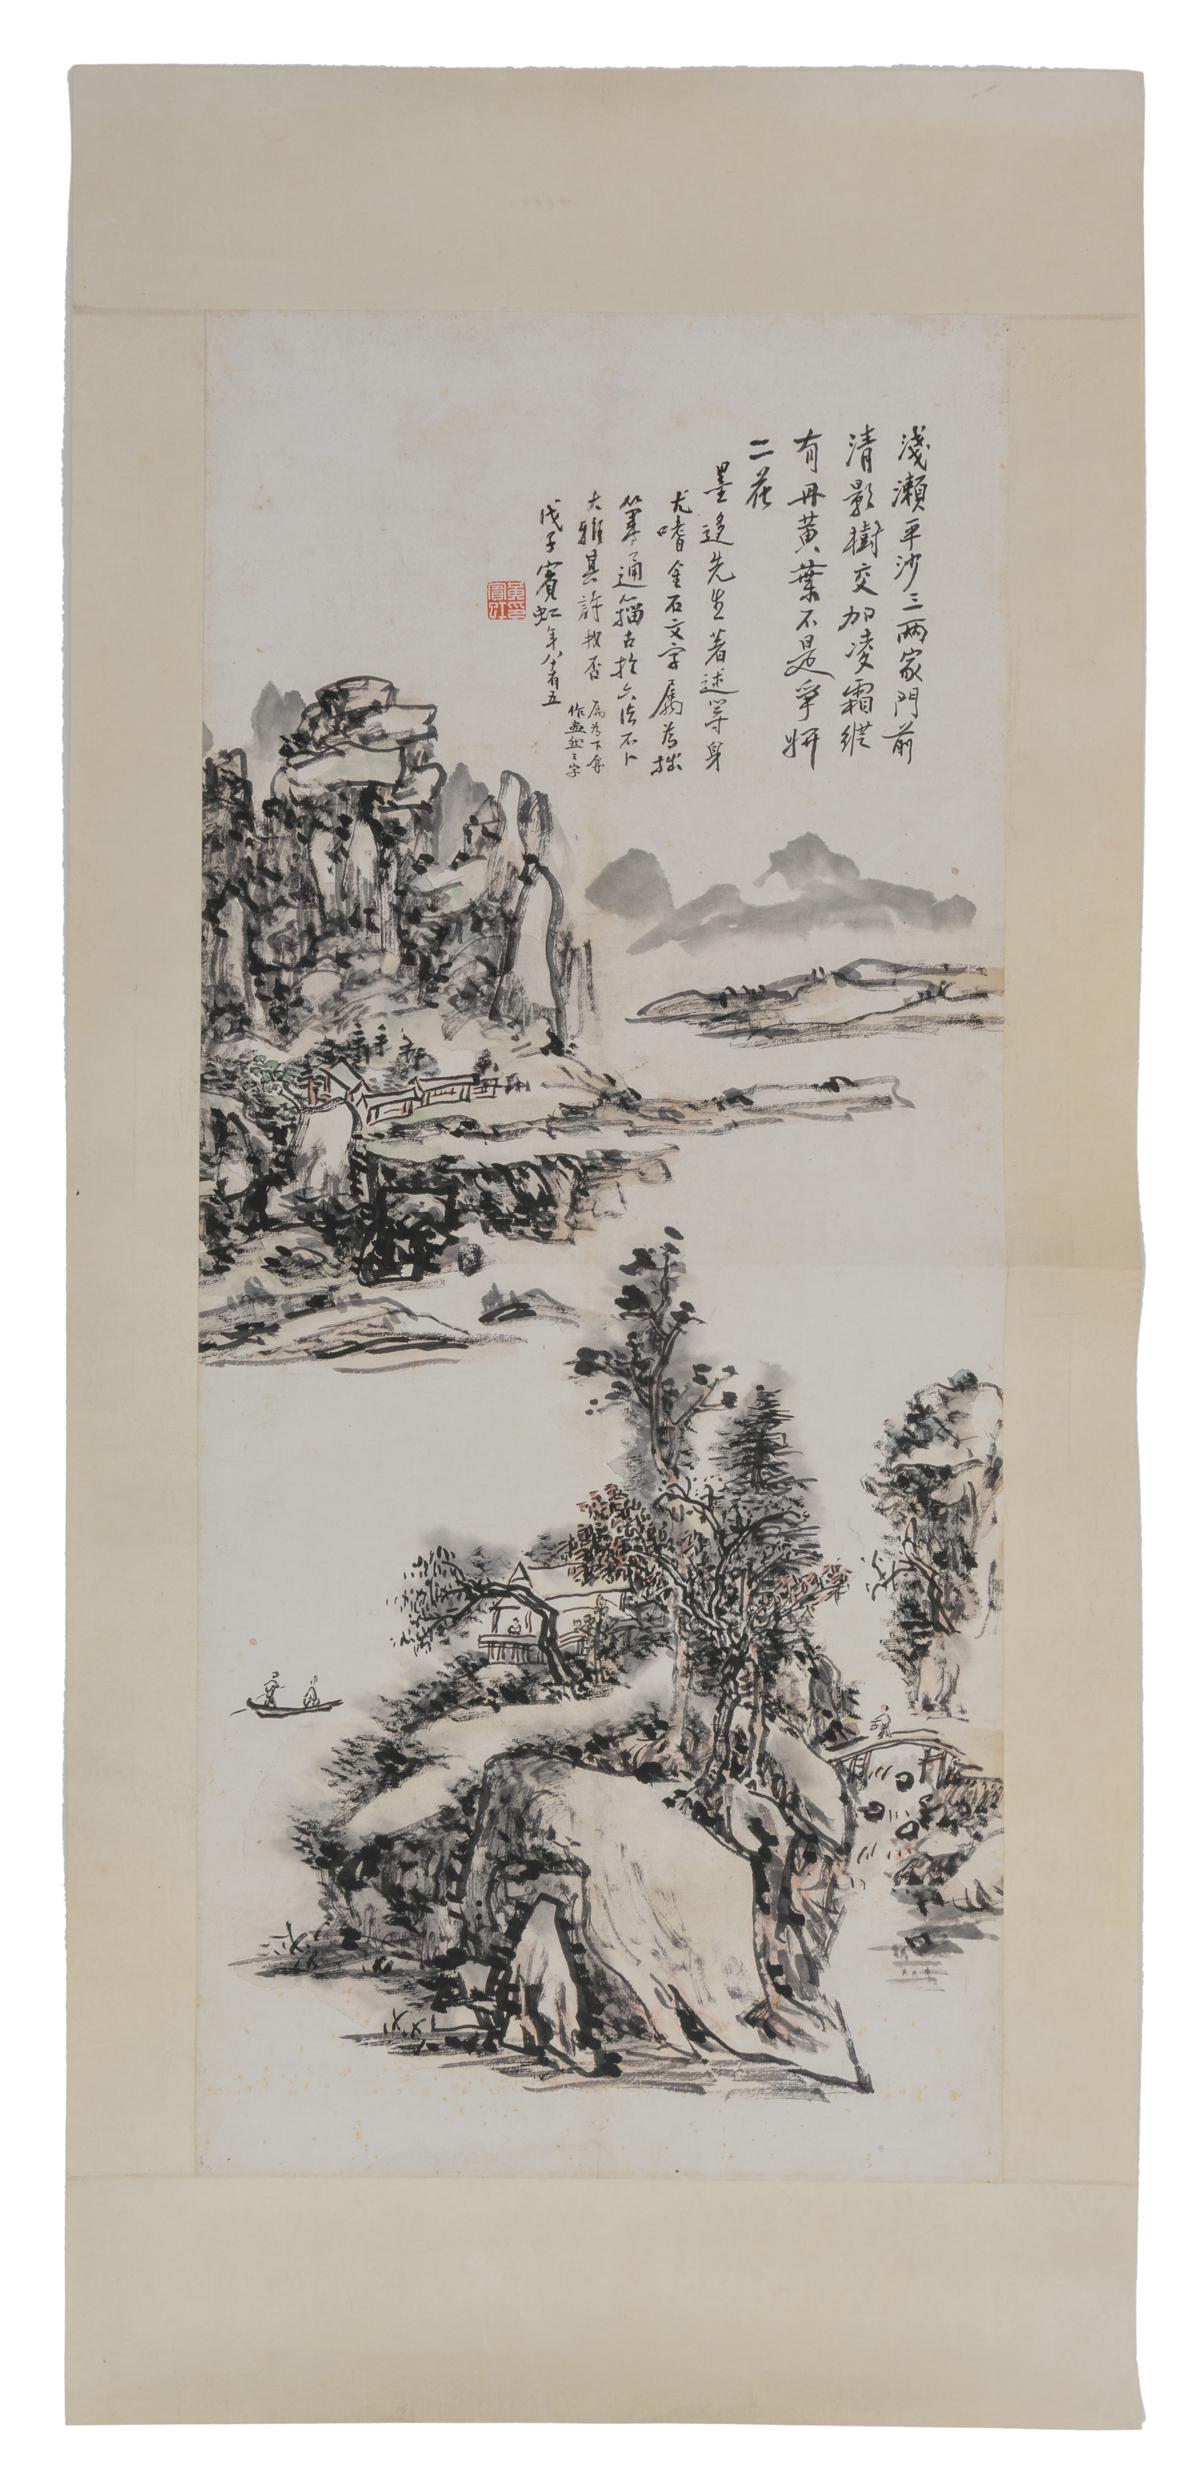 淺瀨平沙三兩家門前
清影樹交加凌霜縱
有丹黃葉不是爭妍
二花
墨迻先生著述等身
尤嗜金石文字屬為拙
筆通籀古於六法不卜
大雅其許我否
戊子賓虹年八十有五
屬為下奪
作畫然三字
黃賓虹印